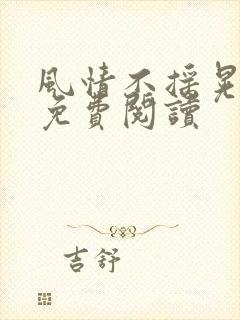 風情不搖晃
免費閱讀
吉舒